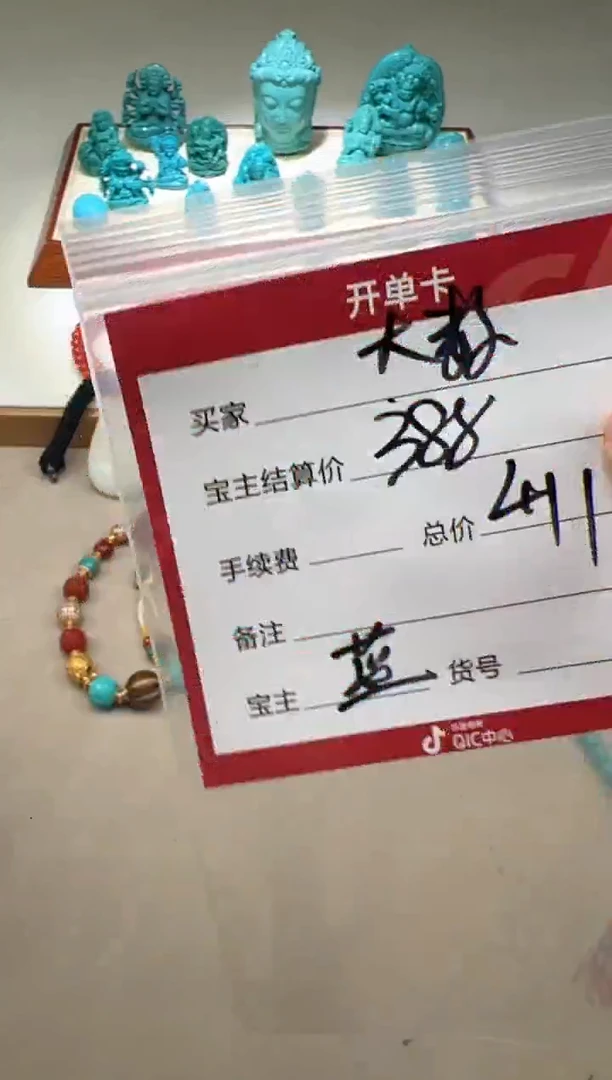 开单卡
买家
宝主结算价 388
手续费 总价 411
备注
宝主 蓝 货号
QIC中心